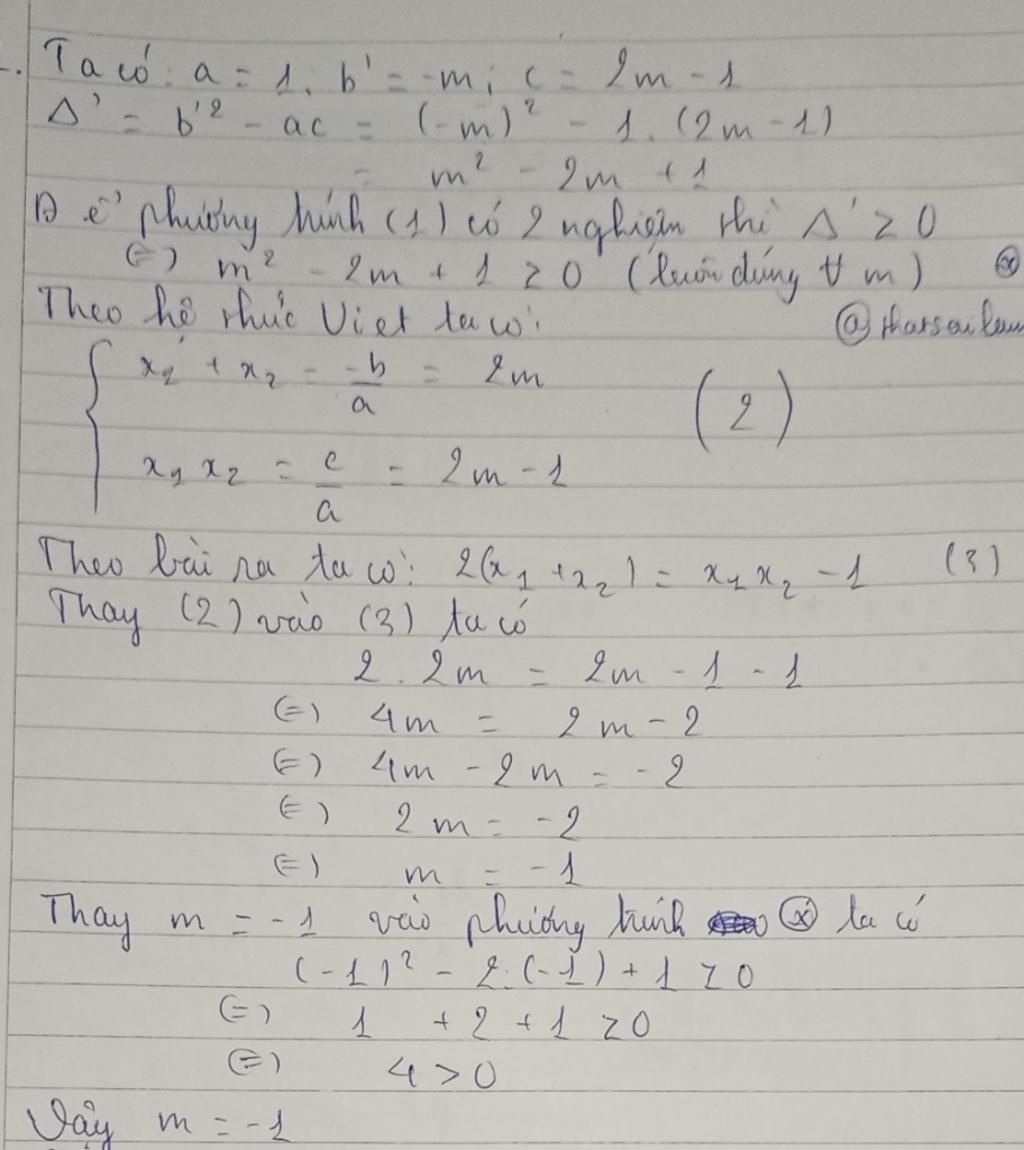 Ta có: a = 1; b' = -m; c = 2m - 1
Δ' = b'² - ac = (-m)² - 1.(2m-1)
= m² - 2m + 1
Để phương trình (1) có 2 nghiệm thì Δ' ≥ 0
(=) m² - 2m + 1 ≥ 0 (luôn đúng ∀ m) ⊗
Theo hệ thức Viet ta có:
{ x₁ + x₂ = -b/a = 2m
x₁ x₂ = c/a = 2m - 1
(2)
Theo bài ra ta có: 2(x₁ + x₂) = x₁ x₂ - 1 (3)
Thay (2) vào (3) ta có
2 . 2m = 2m - 1 - 1
(=) 4m = 2m - 2
(=) 4m - 2m = -2
(=) 2m = -2
(=) m = -1
Thay m = -1 vào phương trình ⊗ ta có
(-1)² - 2.(-1) + 1 ≥ 0
(=) 1 + 2 + 1 ≥ 0
(=) 4 > 0
Vậy m = -1